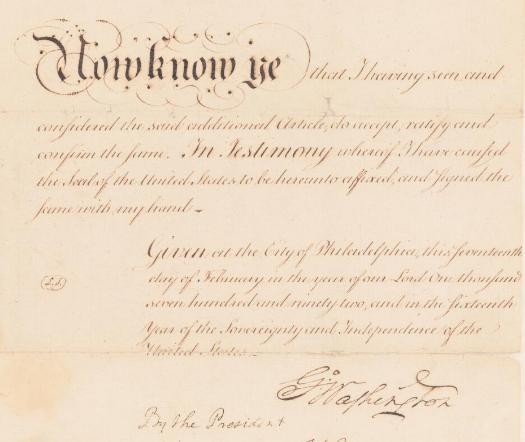 Now know ye that I having seen and
considered the said additional Article, do accept, ratify and
confirm the same. In Testimony whereof I have caused
the Seal of the United States to be hereunto affixed, and signed the
same with my hand –
Given at the City of Philadelphia, this seventeenth
day of February in the year of our Lord One thousand
(L.S.)
seven hundred and ninety two, and in the sixteenth
Year of the Sovereignty and Independence of the
United States –
Go Washington
By the President